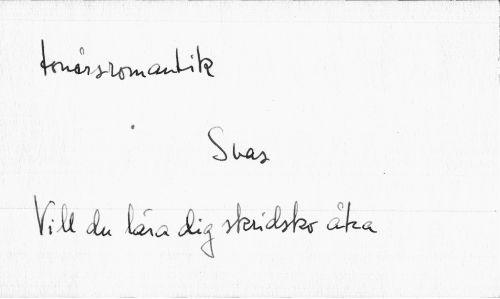 tonårsromantik
Svar
Vill du lära dig skridsko åka